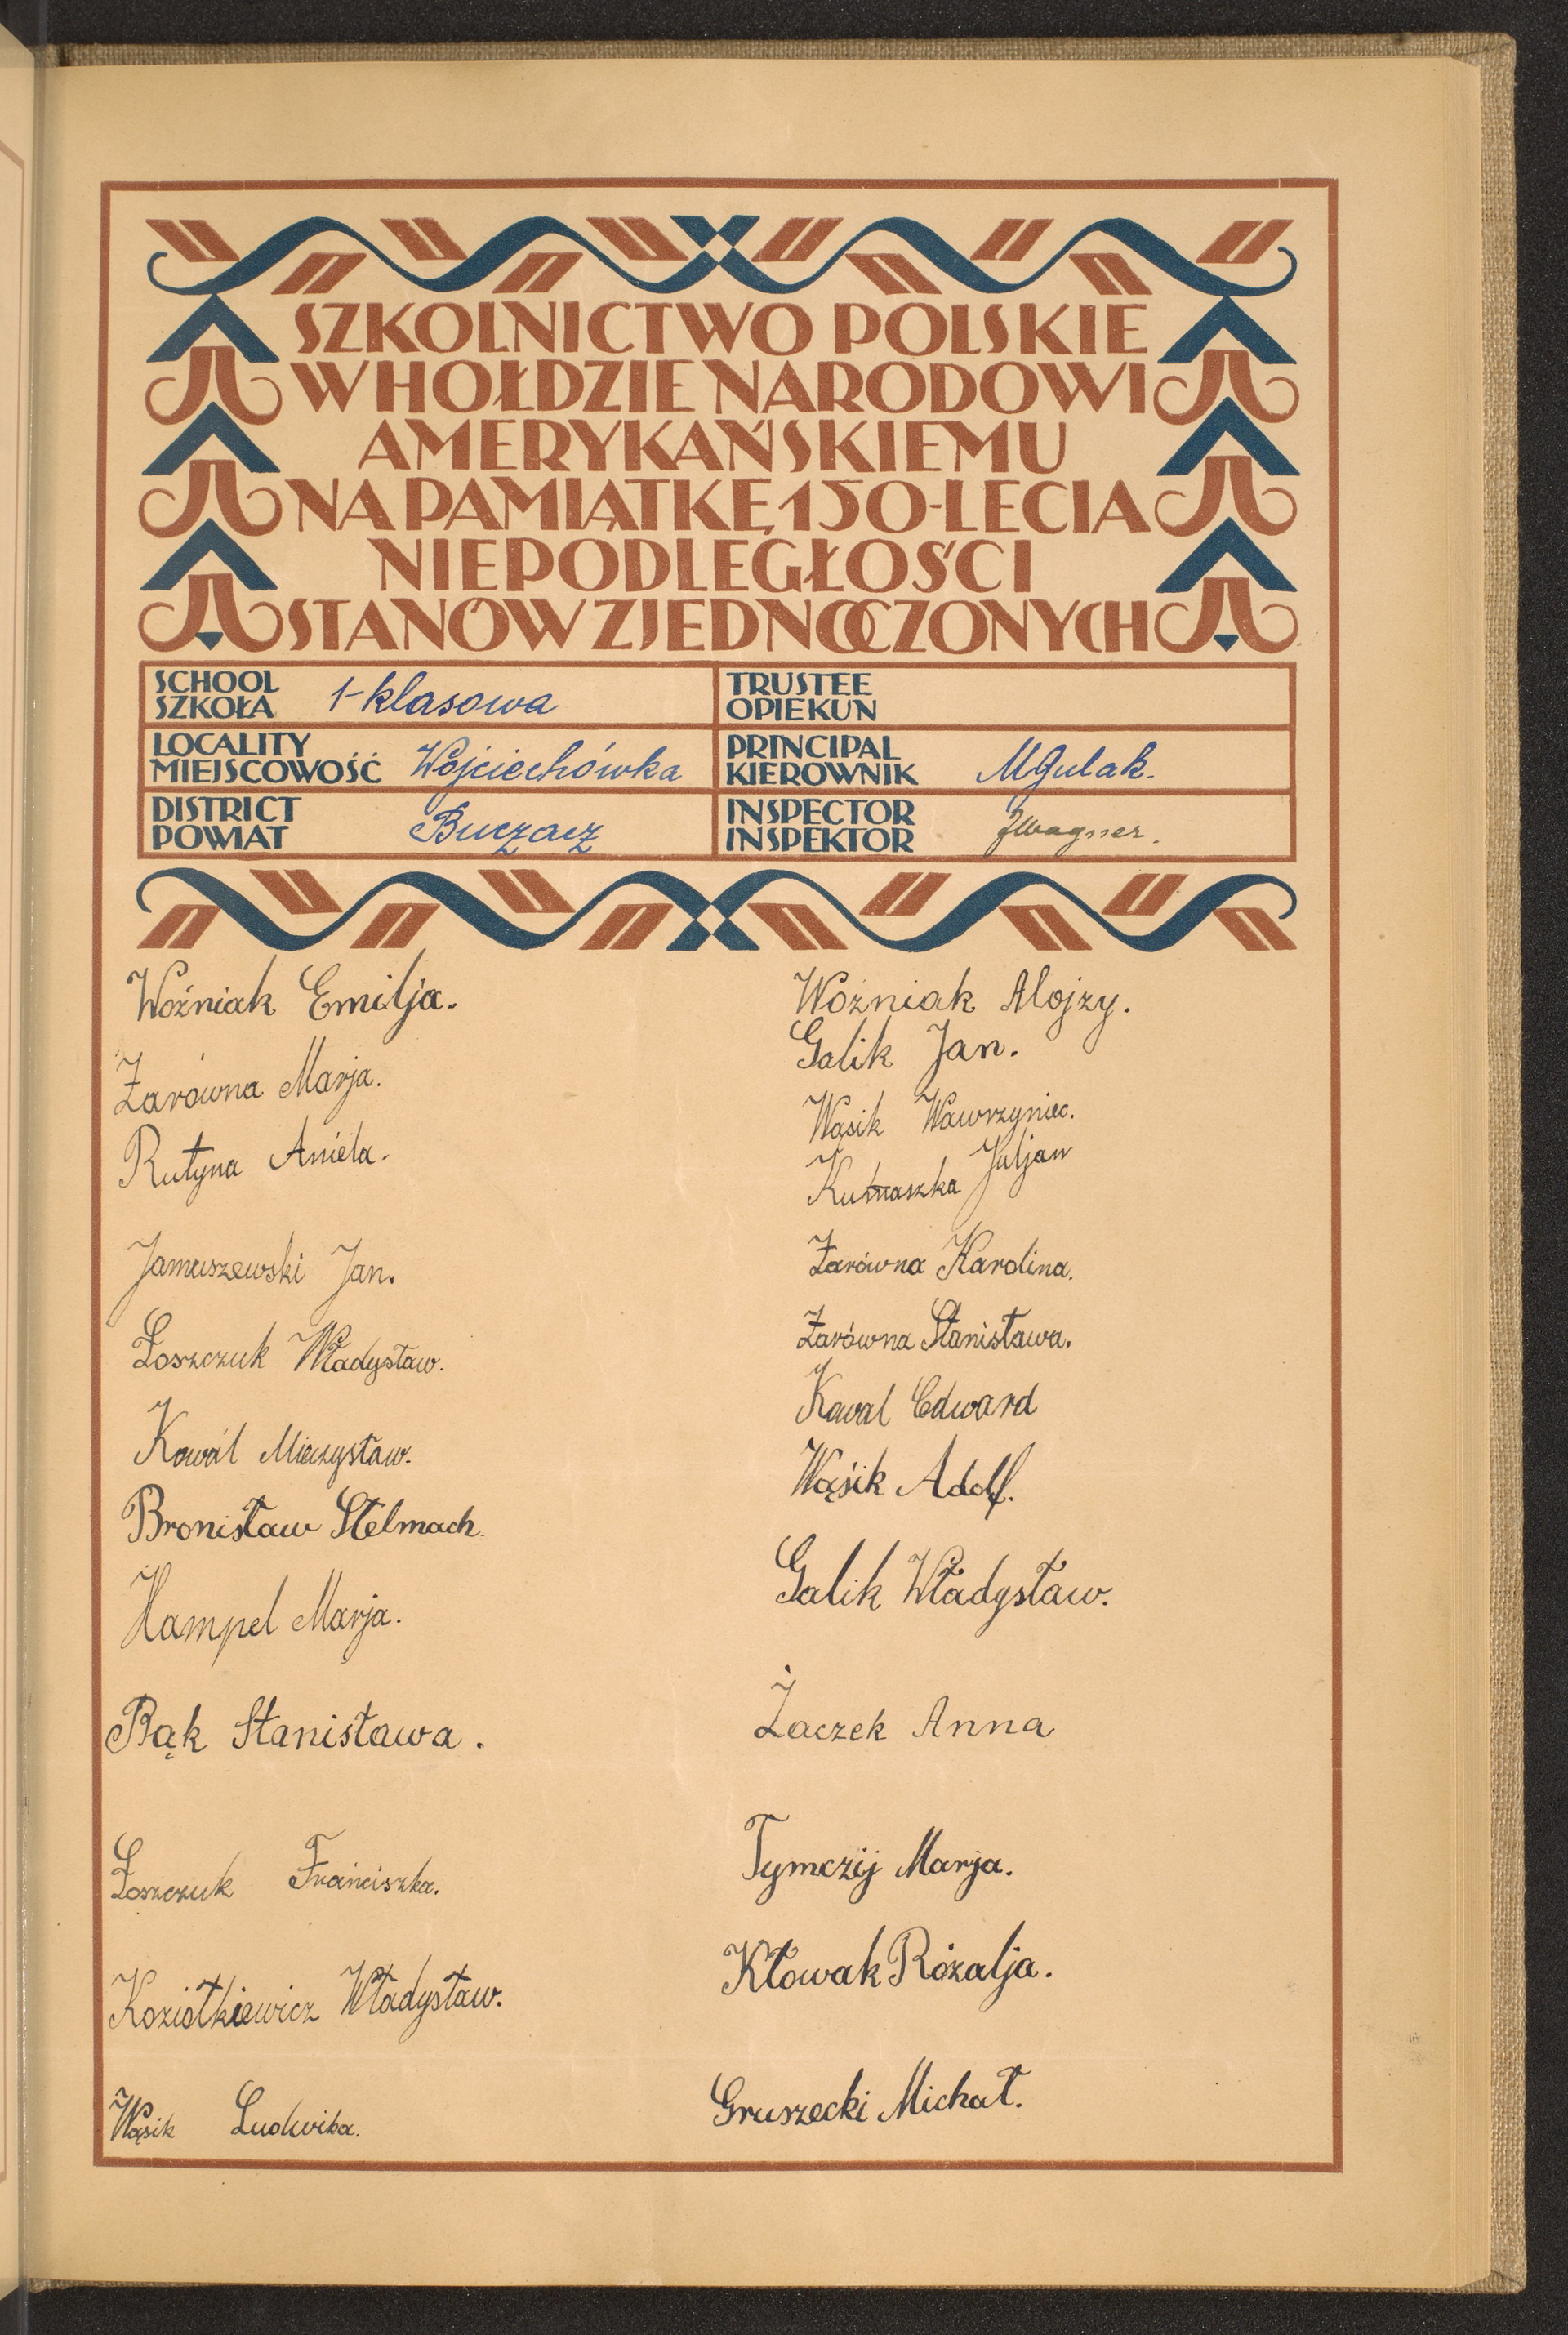 SZKOLNICTWO POLSKIE
W HOŁDZIE NARODOWI
AMERYKAŃSKIEMU
NA PAMIĄTKĘ 150-LECIA
NIEPODLEGŁOŚCI
STANÓW ZJEDNOCZONYCH
SCHOOL
SZKOŁA 1-klasowa
TRUSTEE
OPIEKUN
LOCALITY
MIEJSCOWOŚĆ Wojciechówka
PRINCIPAL
KIEROWNIK MGulak.
DISTRICT
POWIAT Buczacz
INSPECTOR
INSPEKTOR JWagner.
Woźniak Emilja.
Żarówna Marja.
Rutyna Aniela.
Januszewski Jan.
Łoszczuk Władysław.
Kowál Mieczysław.
Bronisław Stelmach.
Hampel Marja.
Bąk Stanisława.
Łoszczuk Franciszka.
Koziołkiewicz Władysław.
Wąsik Ludwika.
Woźniak Alojzy.
Galik Jan.
Wąsik Wawrzyniec.
Kutnaszka Juljan
Żarówna Karolina.
Żarówna Stanisława.
Kowal Edward
Wąsik Adolf.
Galik Władysław.
Żaczek Anna
Tymczij Marja.
Kłowak Rózalja.
Gruszecki Michał.